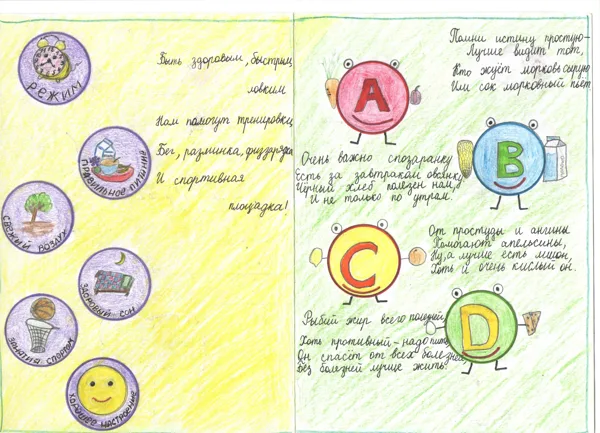 РЕЖИМ
ПРАВИЛЬНОЕ ПИТАНИЕ
СВЕЖИЙ ВОЗДУХ
ЗДОРОВЫЙ СОН
ЗАНЯТИЯ СПОРТОМ
ХОРОШЕЕ НАСТРОЕНИЕ
Быть здоровым, быстрым,
ловким
Нам помогут тренировки,
Бег, разминка, физзарядка
И спортивная
площадка!
Помни истину простую-
Лучше видит тот,
Кто жуёт морковь сырую
Или сок морковный пьёт
A
Очень важно спозаранку
Есть за завтраком овсянку
Чёрный хлеб полезен нам,
И не только по утрам.
B
От простуды и ангины
Помогают апельсины,
Ну, а лучше есть лимон,
Хоть и очень кислый он.
C
Рыбий жир всего полезней,
Хоть противный - надо пить
Он спасёт от всех болезней,
Без болезней лучше жить.
D